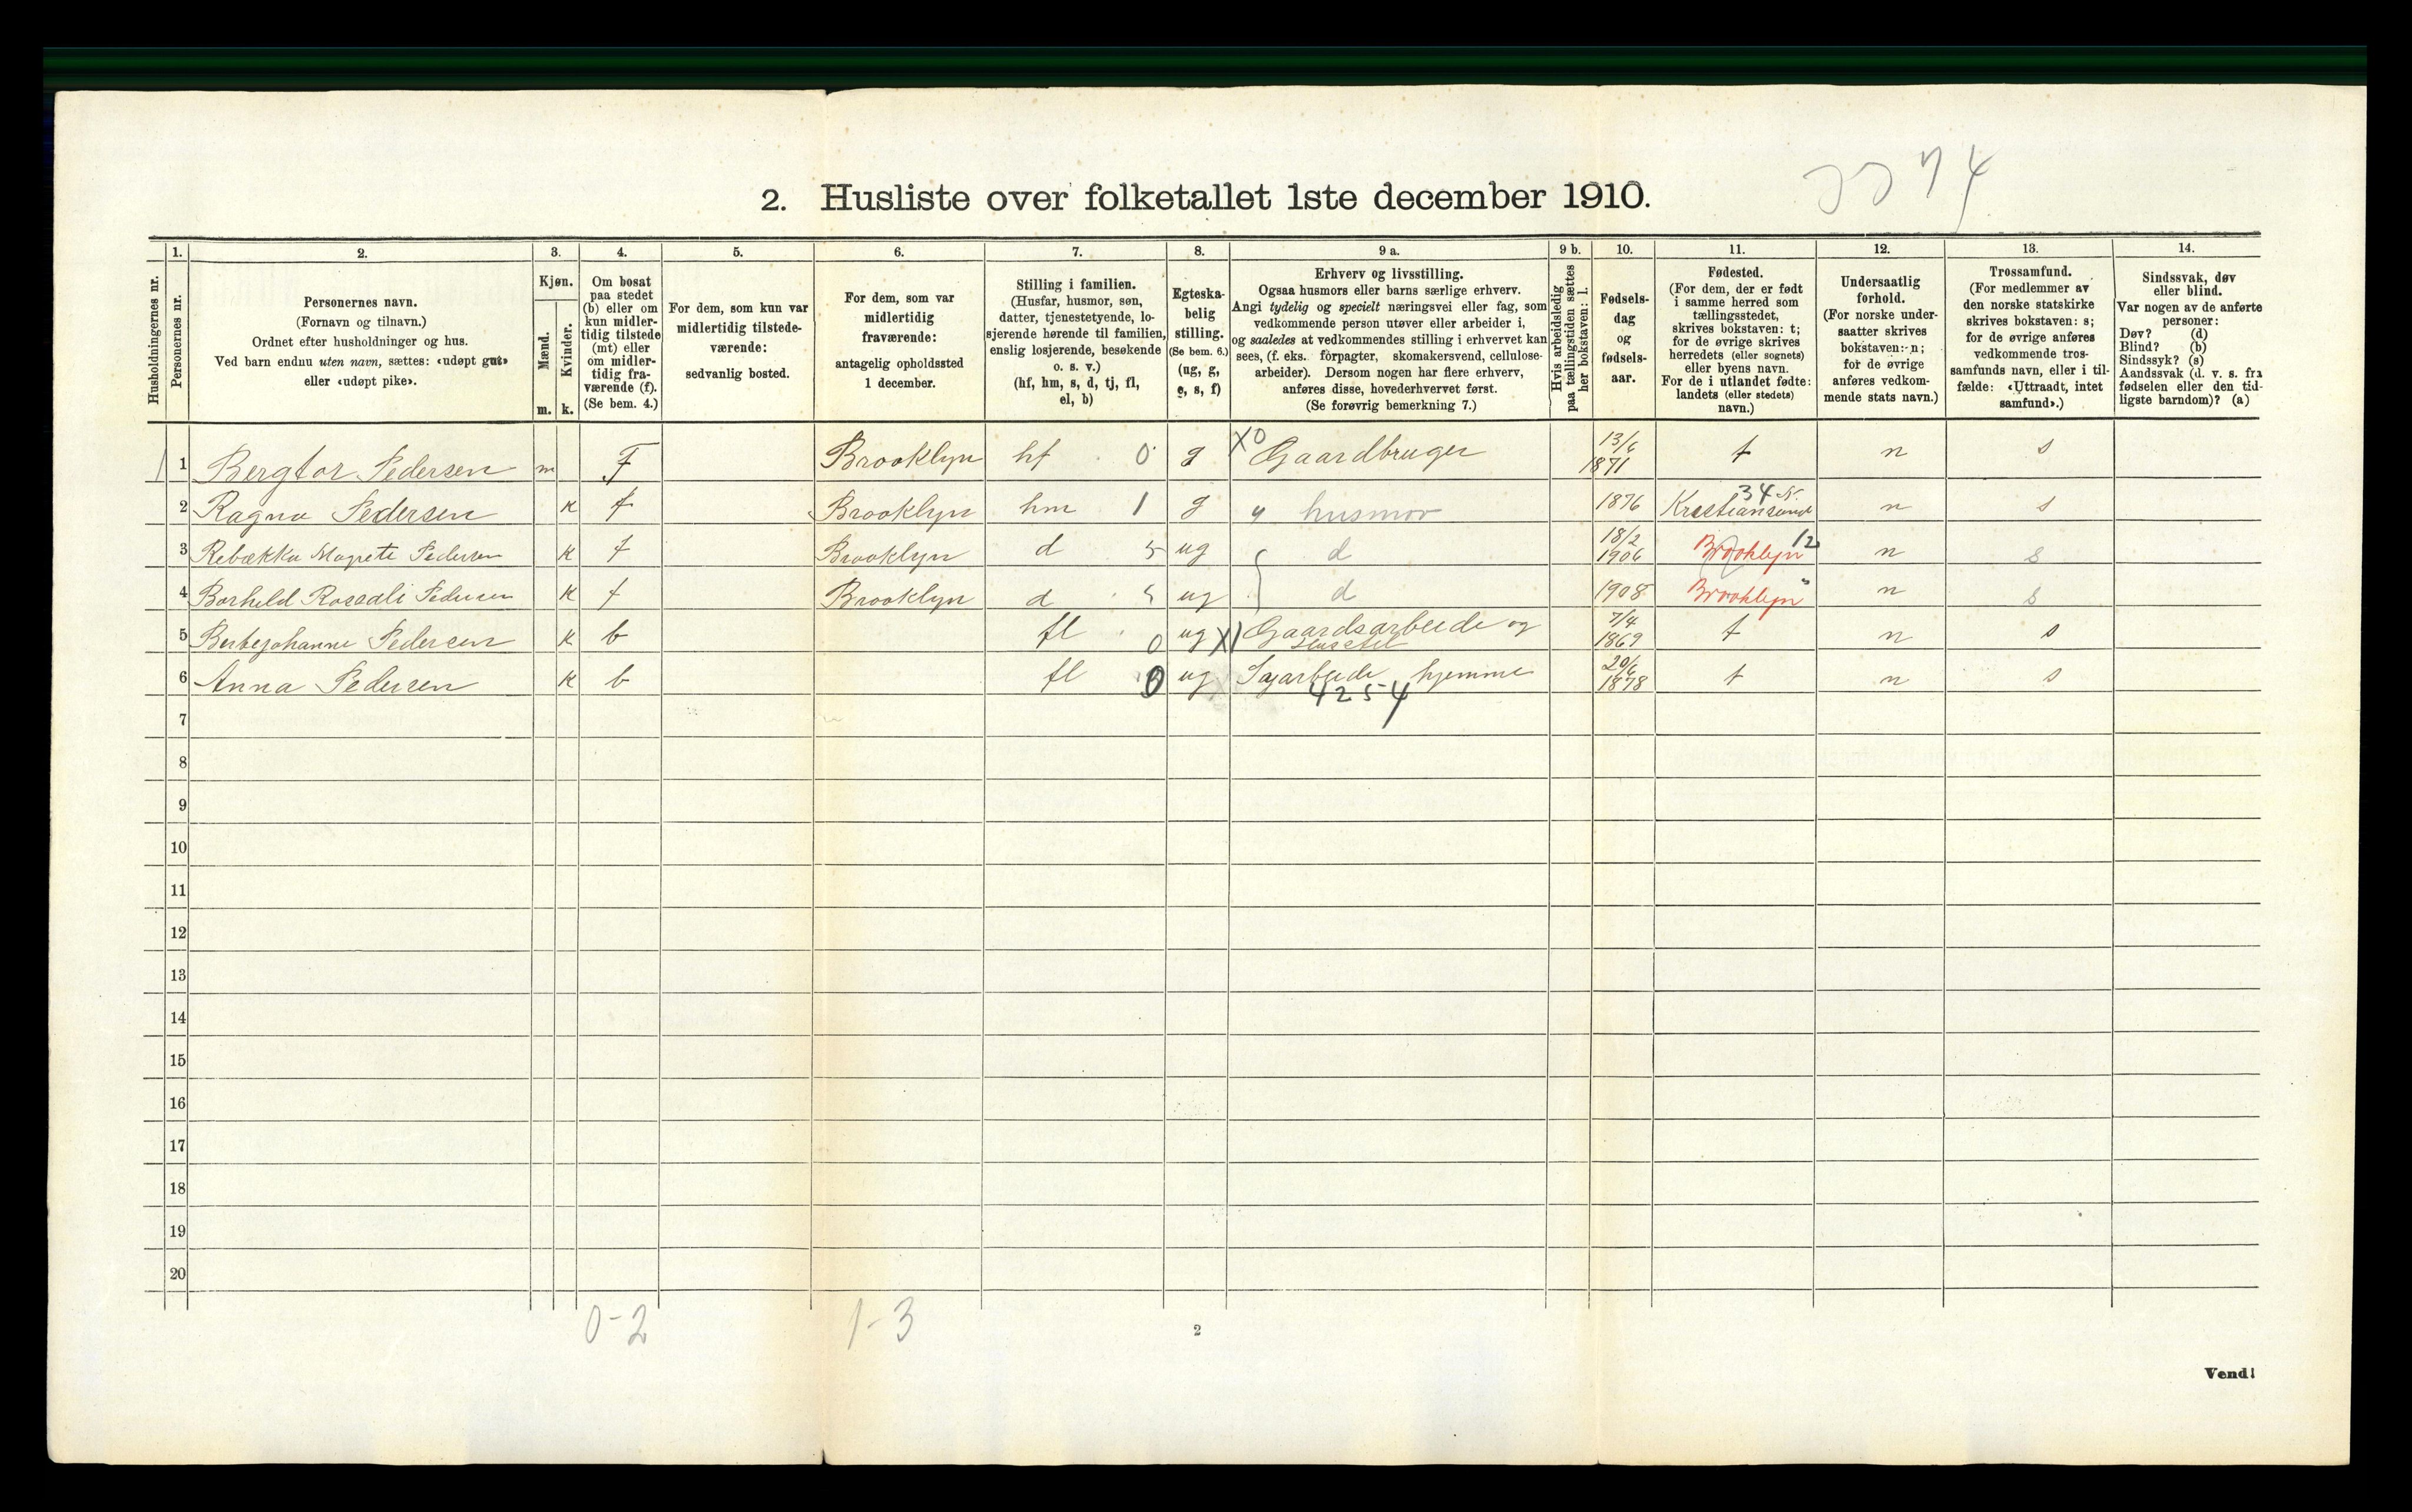 2. Husliste over folketallet 1ste december 1910.
Husholdningernes nr.
1.
Personernes nr.
2.
Personernes navn.
(Fornavn og tilnavn.)
Ordnet efter husholdninger og hus.
Ved barn endnu uten navn, sættes: «udøpt gut»
eller «udøpt pike».
3.
Kjøn.
Mænd.
Kvinder.
m. k.
4.
Om bosat
paa stedet
(b) eller om
kun midler-
tidig tilstede
(mt) eller
om midler-
tidig fra-
værende (f).
(Se bem. 4.)
5.
For dem, som kun var
midlertidig tilstede-
værende:
sedvanlig bosted.
6.
For dem, som var
midlertidig
fraværende:
antagelig opholdssted
1 december.
7.
Stilling i familien.
(Husfar, husmor, søn,
datter, tjenestetyende, lo-
sjerende hørende til familien,
enslig losjerende, besøkende
o. s. v.)
(hf, hm, s, d, tj, fl,
el, b)
8.
Egteska-
belig
stilling.
(Se bem. 6.)
(ug, g,
e, s, f)
9 a.
Erhverv og livsstilling.
Ogsaa husmors eller barns særlige erhverv.
Angi tydelig og specielt næringsvei eller fag, som
vedkommende person utøver eller arbeider i,
og saaledes at vedkommendes stilling i erhvervet kan
sees, (f. eks. forpagter, skomakersvend, cellulose-
arbeider). Dersom nogen har flere erhverv,
anføres disse, hovederhvervet først.
(Se forøvrig bemerkning 7.)
9 b.
Hvis arbeidsledig
paa tællingstiden sættes
her bokstaven: l.
10.
Fødsels-
dag
og
fødsels-
aar.
11.
Fødested.
(For dem, der er født
i samme herred som
tællingsstedet,
skrives bokstaven: t;
for de øvrige skrives
herredets (eller sognets)
eller byens navn.
For de i utlandet fødte:
landets (eller stedets)
navn.)
12.
Undersaatlig
forhold.
(For norske under-
saatter skrives
bokstaven: n;
for de øvrige
anføres vedkom-
mende stats navn.)
13.
Trossamfund.
(For medlemmer av
den norske statskirke
skrives bokstaven: s;
for de øvrige anføres
vedkommende tros-
samfunds navn, eller i til-
fælde: «Uttraadt, intet
samfund».)
14.
Sindssvak, døv
eller blind.
Var nogen av de anførte
personer:
Døv? (d)
Blind? (b)
Sindssyk? (s)
Aandssvak (d. v. s. fra
fødselen eller den tid-
ligste barndom)? (a)
1 Bergtor Pedersen m F Brooklyn hf 0 g X0 Gaardbruger 13/6 1871 t n s
2 Ragna Pedersen k f Brooklyn hm 1 g husmor 1876 Kristiansund N. 34 n s
3 Rebækka Magrete Pedersen k f Brooklyn d 5 ug d 18/2 1906 Brooklyn 12 n s
4 Borhild Rossali Pedersen k f Brooklyn d 5 ug d 1908 Brooklyn " n s
5 Pedersen k b fl 0 ug X1 Gaardsarbeide og
Husstel 7/4 1869 t n s
6 Anna Pedersen k b fl 0 ug Syarbeide hjemme 20/6 1878 t n s
4254
7
8
9
10
11
12
13
14
15
16
17
18
19
20
0-2 1-3
2
Vend!